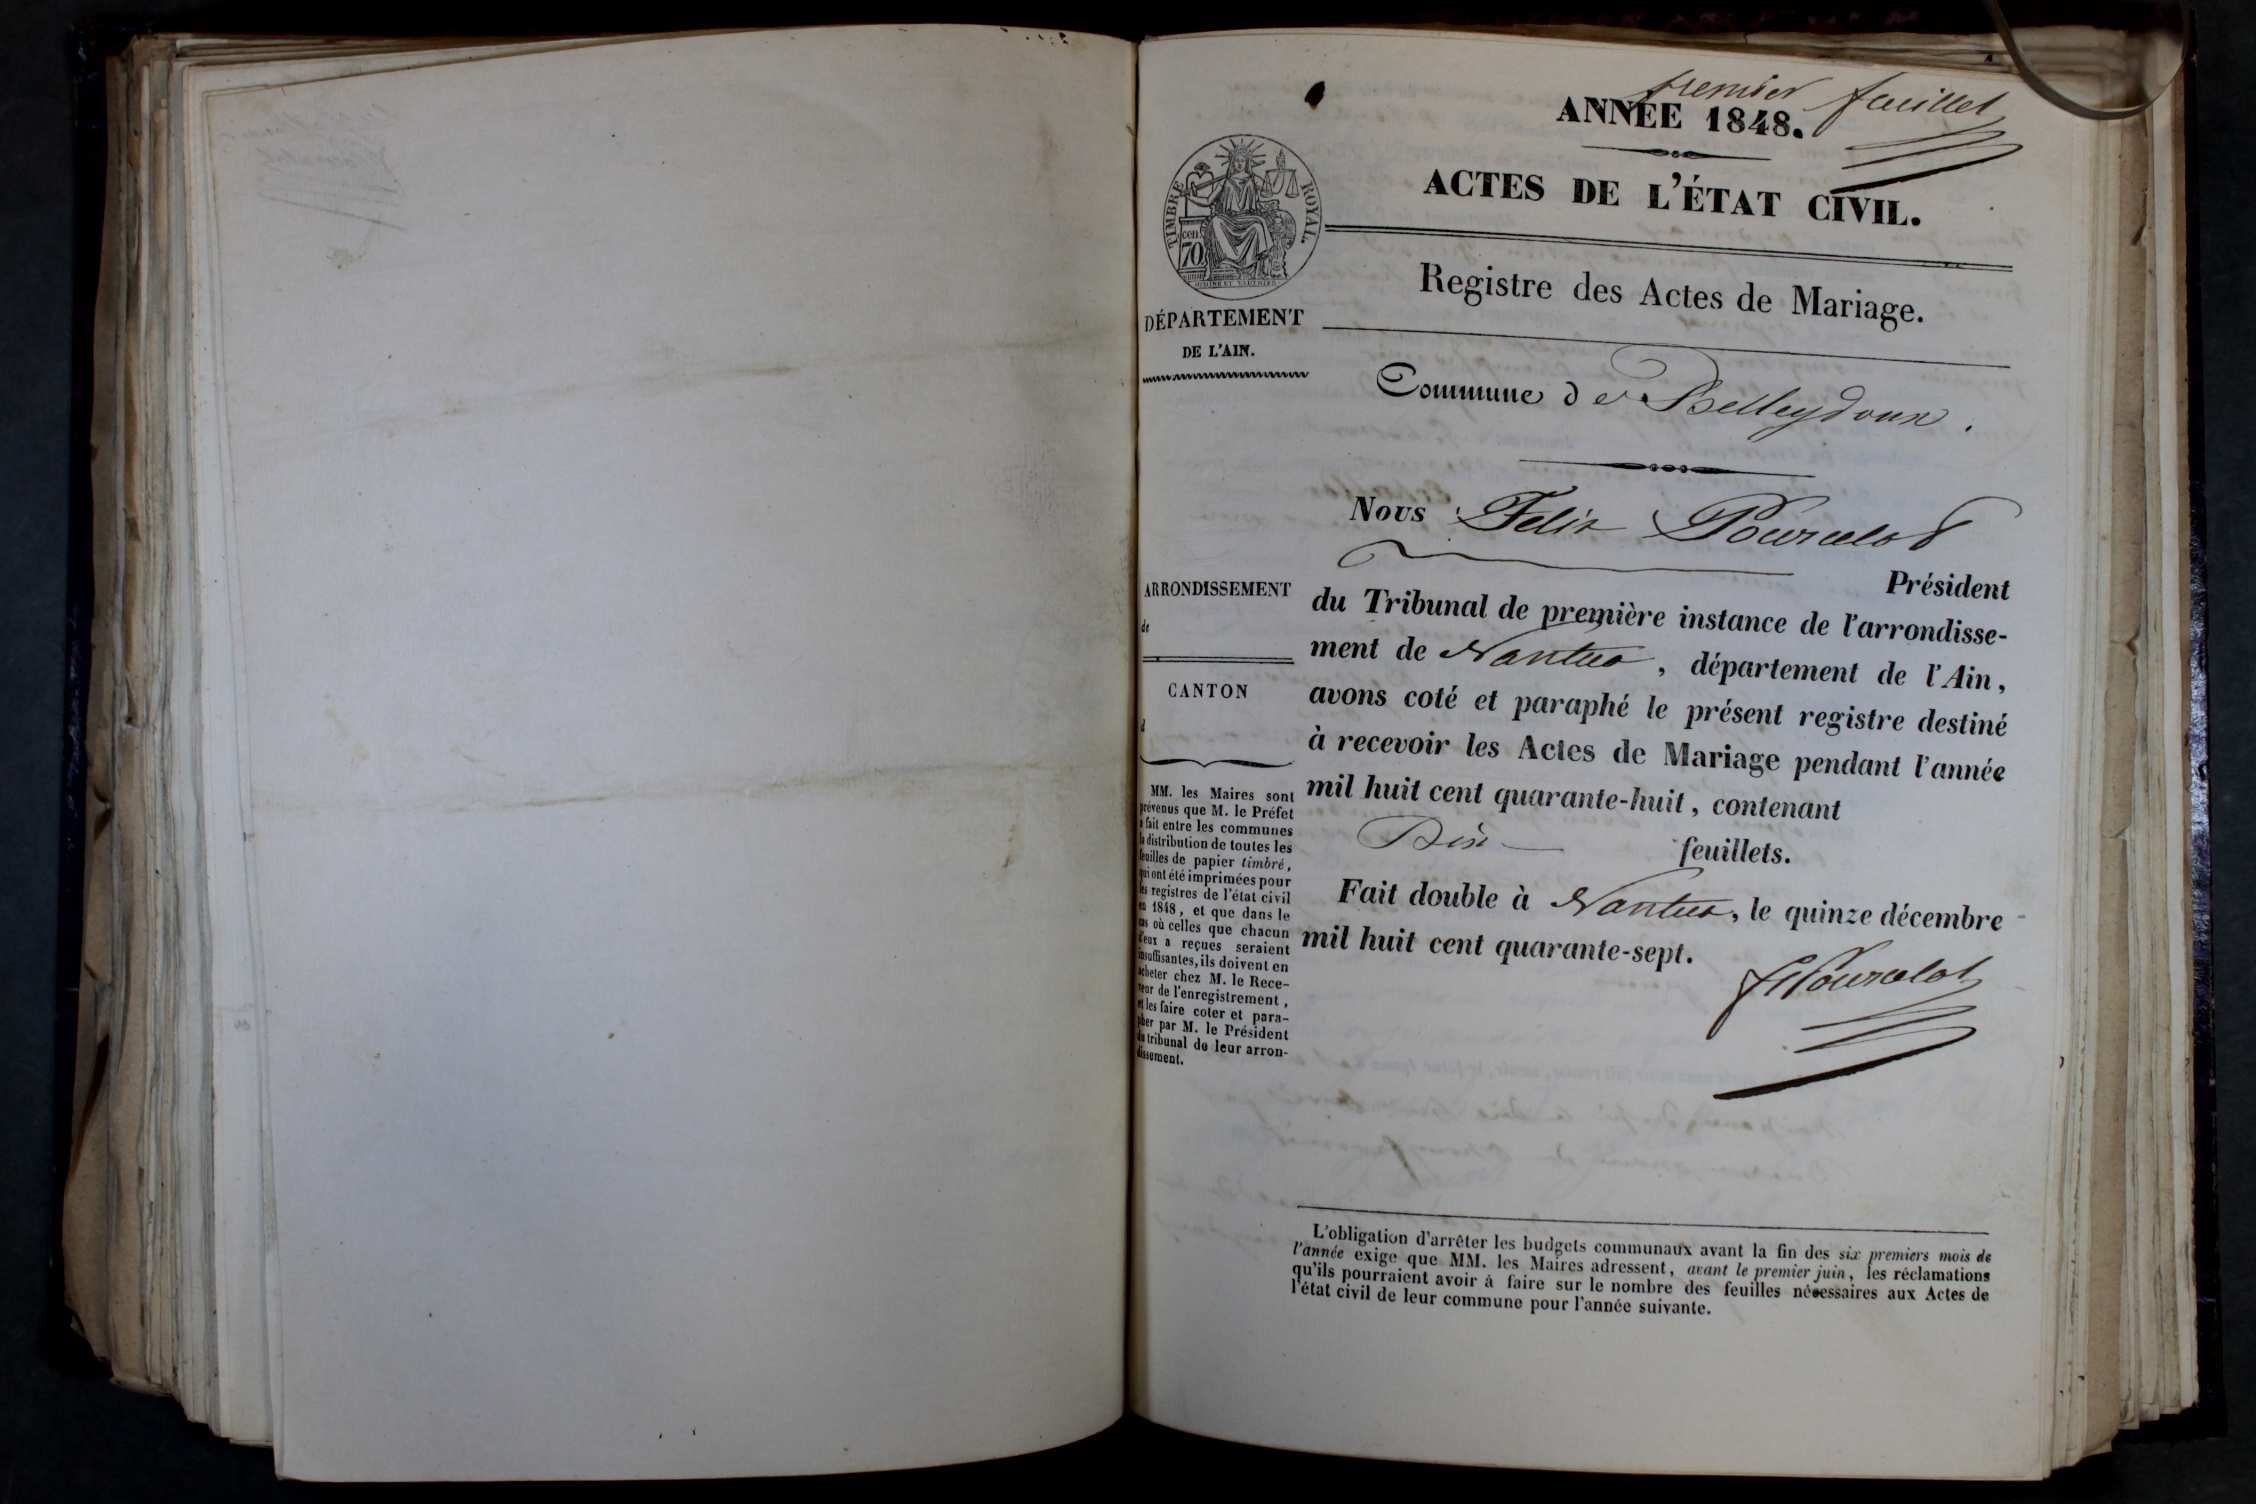 premier feuillet
ANNÉE 1848.
ACTES DE L'ÉTAT CIVIL.
TIMBRE ROYAL.
cen.
70
Registre des Actes de Mariage.
DÉPARTEMENT
DE L'AIN.
Commune de Belleydoux.
Nous Félix Pourcelot
Président
du Tribunal de première instance de l'arrondisse-
ment de Nantua, département de l'Ain,
avons coté et paraphé le présent registre destiné
à recevoir les Actes de Mariage pendant l'année
mil huit cent quarante-huit, contenant
feuillets.
Fait double à Nantua, le quinze décembre
mil huit cent quarante-sept.
FPourcelot
ARRONDISSEMENT
de
CANTON
d
MM. les Maires sont
prévenus que M. le Préfet
a fait entre les communes
la distribution de toutes les
feuilles de papier timbré,
qui ont été imprimées pour
les registres de l'état civil
en 1848, et que dans le
cas où celles que chacun
d'eux a reçues seraient
insuffisantes, ils doivent en
acheter chez M. le Rece-
veur de l'enregistrement,
et les faire coter et para-
pher par M. le Président
du tribunal de leur arron-
dissement.
L'obligation d'arrêter les budgets communaux avant la fin des six premiers mois de
l'année exige que MM. les Maires adressent, avant le premier juin, les réclamations
qu'ils pourraient avoir à faire sur le nombre des feuilles nécessaires aux Actes de
l'état civil de leur commune pour l'année suivante.